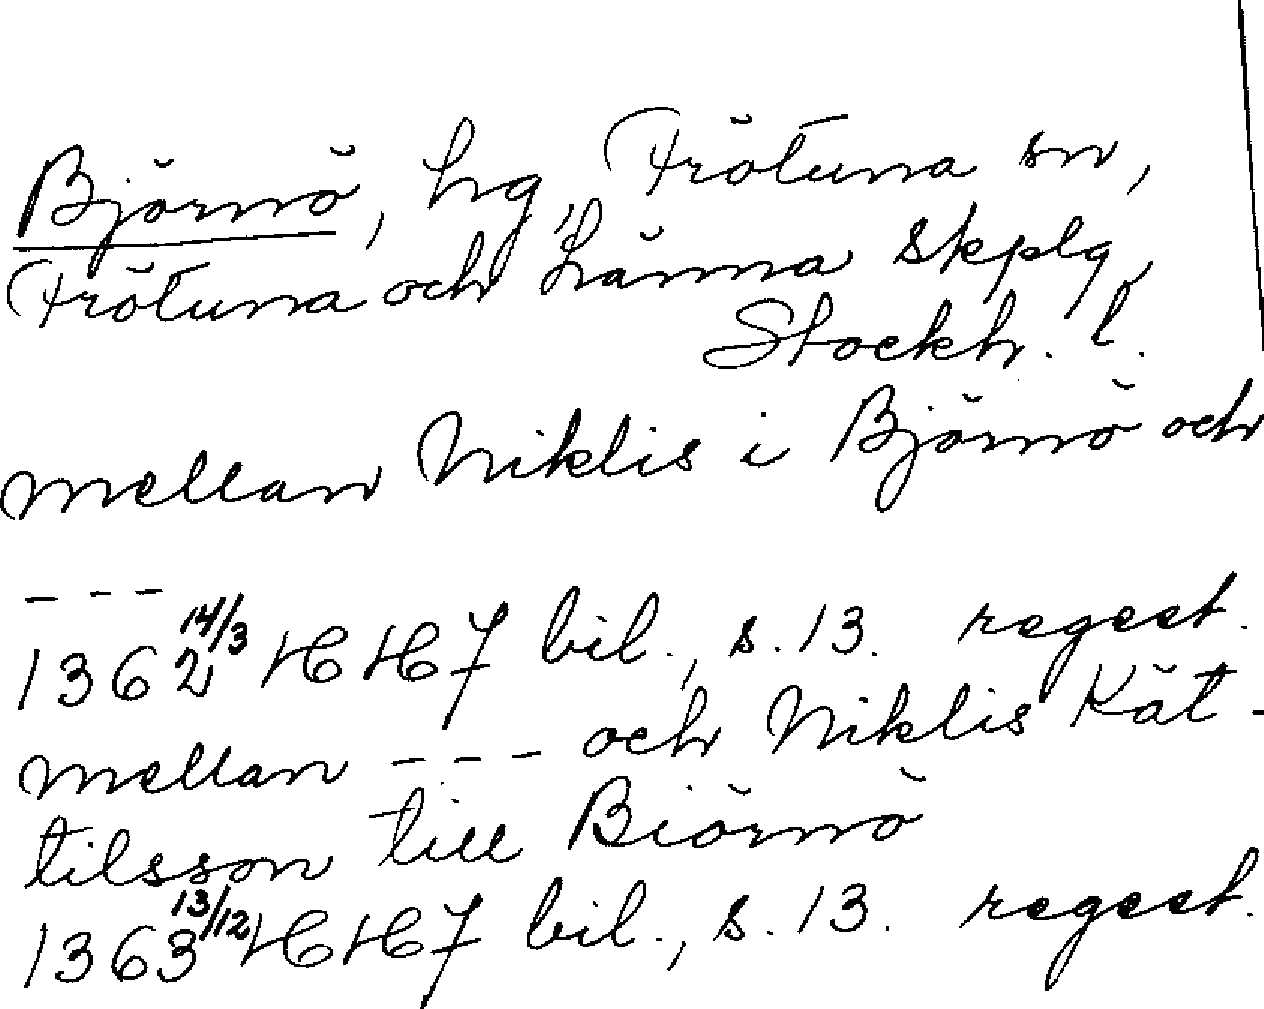 Björnö, hg, Frötuna sn,
Frötuna och Länna skplg,
Stockh. l.
mellan Niklis i Björnö och
---
1362 14/3 HH 7 bil., s. 13. regest.
mellan --- och Niklis Kät-
tilsson till Biörnö
1363 13/12 HH 7 bil., s. 13. regest.